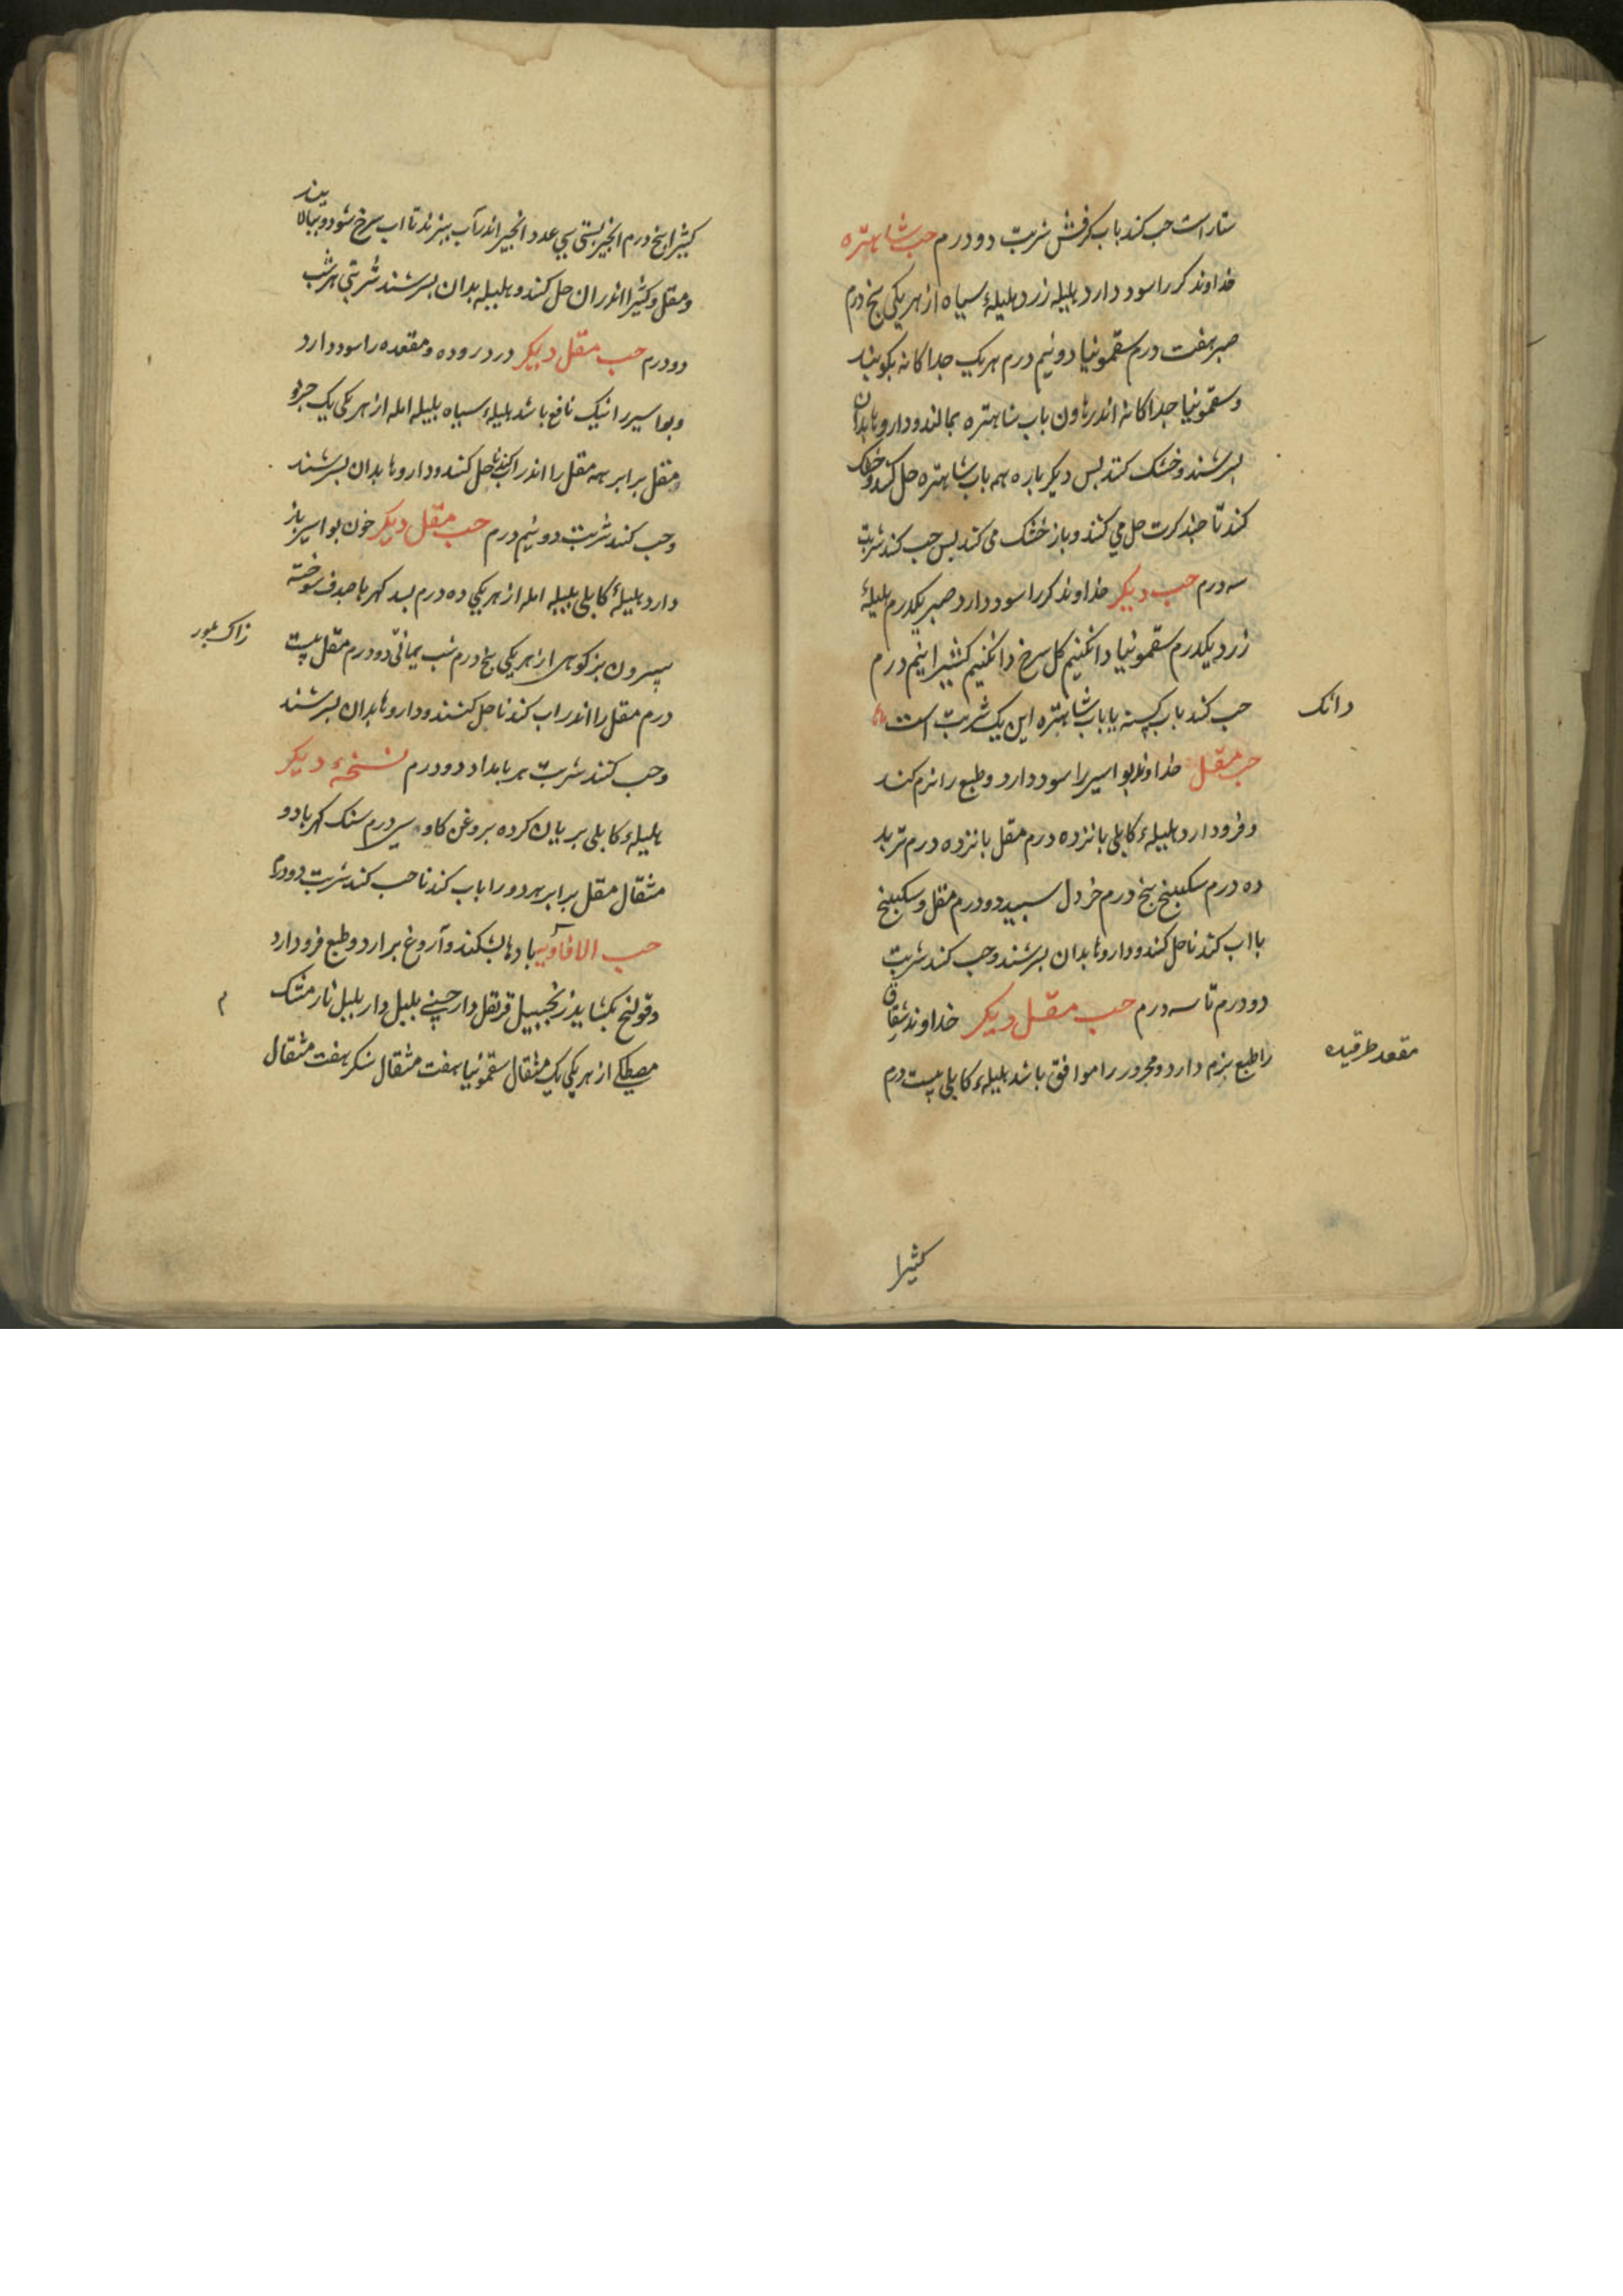 ستار است حب کند باب کرفش شربت دو درم حب شاهتره
خداوند کر را سود دارد هلیله زرد هلیلهٔ سیاه از هر یکی پنج درم
صبر هفت درم سقمونیا دو نیم درم هر یک جداکانه بکوبند
و سقمونیا جداکانه اندر هاون باب شاهتره بمالند و داروها بدان
بسرشند و خشک کنند بس دیکر باره هم باب شاهتره حل کنند و خشک
کند تا چند کرت حل می کنند و باز خشک می کند بس حب کند شربت
سه درم حب دیکر خداوند کر را سود دارد صبر یکدرم هلیلهٔ
زرد یکدرم سقمونیا دانکنیم کل سرخ دانکنیم کثیرا نیم درم
دانک
حب کند باب کسنه یا باب شاهتره این یک شربت است
حب مقل خداوند بواسیر را سود دارد و طبع را نرم کند
و فرود ارد هلیلهٔ کابلی بانزده درم مقل بانزده درم تربد
ده درم سکبینج پنج درم خردل سبید دو درم مقل و سکبینج
با اب کندنا حل کنند و داروها بدان بسرشند و حب کند شربت
دو درم تا سه درم حب مقل دیکر خداوند شقاق
مقعد طرقیده
را طبع نرم دارد و محرور را موافق باشد هلیلهٔ کابلی بیست درم
کثیرا
کثیرا پنج درم انجیر بستی سی عدد انجیر اندر آب ببزند تا اب سرخ شود و ببالایند
و مقل و کثیرا اندر ان حل کنند و هلیله بدان بسرشند شربتی هر شب
دو درم حب مقل دیکر درد روده و مقعده را سود دارد
و بواسیر را نیک نافع باشد هلیلهٔ سیاه بلیله امله از هر یکی یک جزو
مقل برابر همه مقل را اندر اب کندنا حل کنند و داروها بدان بسرشند
و حب کند شربت دو نیم درم حب مقل دیکر خون بواسیر باز
دارد هلیلهٔ کابلی بلیله امله از هر یکی ده درم بسد کهربا صدف سوخته
سرون بز کوهی از هر یکی پنج درم شب یمانی دو درم مقل بیست
زاک بلور
درم مقل را اندر اب کندنا حل کنند و داروها بدان بسرشند
و حب کنند شربت هر بامداد دو درم نسخهٔ دیکر
هلیلهٔ کابلی بریان کرده بروغن کاو سی درم سنک کهربا دو
مثقال مقل برابر هر دو را باب کندنا حب کند شربت دو درم
حب الافاویه بادها بشکند و آروغ برارد و طبع فرود ارد
و قولنج بکشاید زنجبیل قرنفل دارچینی بلبل دار بلبل نارمشک
مصطکی از هر یکی یک مثقال سقمونیا هفت مثقال شکر هفت مثقال